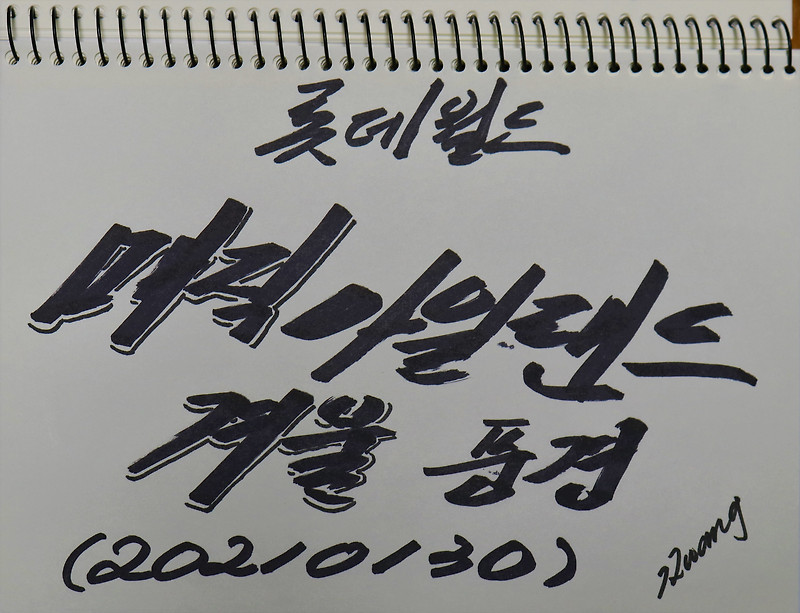 롯데월드
매직 아일랜드
겨울 풍경
(20210130)